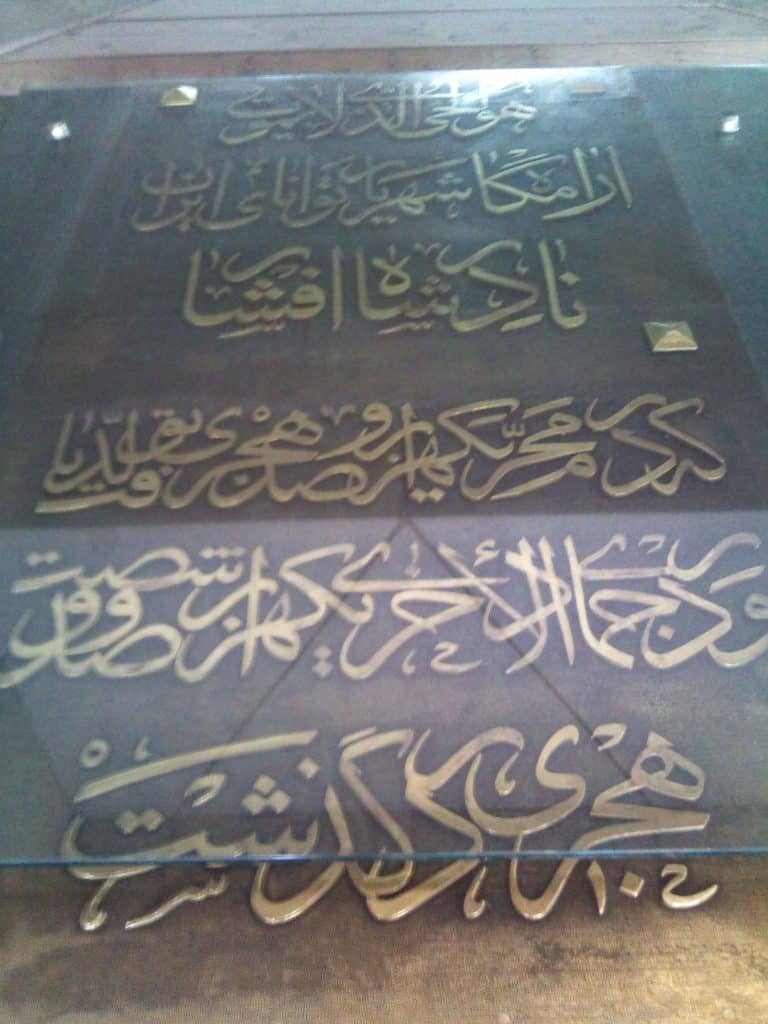 هو الحی الذی لایموت
آرامگاه شهریار توانای ایران
نادر شاه افشار
که در محرم یکهزار و صد هجری بقید
و در جمادی الاخری یکهزار و صد و شصت
هجری در گذشت